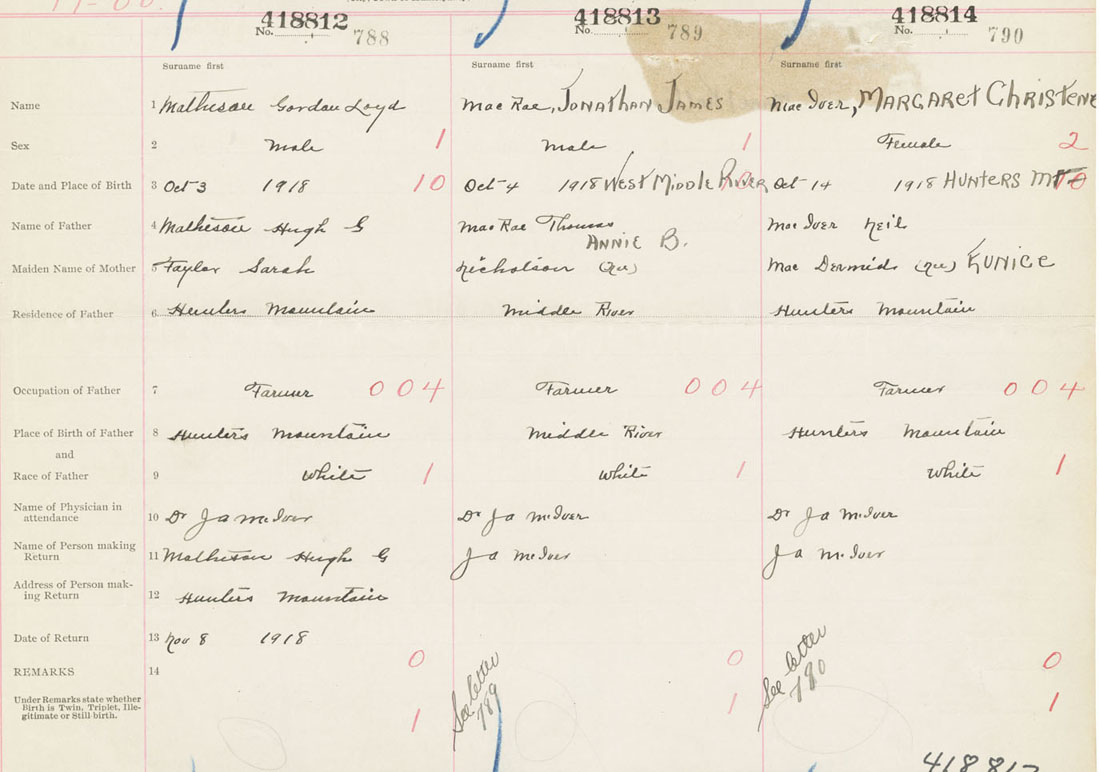 418812 418813 418814
No. 788 No. 789 No. 790
Surname first Surname first Surname first
Name 1 Matheson Gordon Loyd Mac Rae, JONATHAN JAMES Mac Iver, MARGARET CHRISTENE
Sex 2 Male 1 Male 1 Female 2
Date and Place of Birth 3 Oct 3 1918 10 Oct 4 1918 WEST MIDDLE RIVER Oct 14 1918 HUNTERS MT 10
Name of Father 4 Matheson Hugh G Mac Rae Thomas Mac Iver Neil
ANNIE B.
Maiden Name of Mother 5 Taylor Sarah Nicholson (nee) Mac Dermid (nee) EUNICE
Residence of Father 6 Hunters Mountain Middle River Hunters Mountain
Occupation of Father 7 Farmer 004 Farmer 004 Farmer 004
Place of Birth of Father 8 Hunters Mountain Middle River Hunters Mountain
and
Race of Father 9 White 1 White 1 White 1
Name of Physician in
attendance 10 Dr J a McIver Dr J a McIver Dr J a McIver
Name of Person making
Return 11 Matheson Hugh G J a McIver J a McIver
Address of Person mak-
ing Return 12 Hunters Mountain
Date of Return 13 Nov 8 1918
REMARKS 14 0 0 0
Under Remarks state whether
Birth is Twin, Triplet, Ille-
gitimate or Still birth. 1 1 1
See letter
789
See letter
790